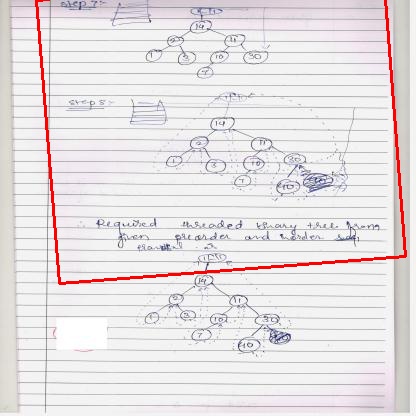 step 7:-
14
2 11
1 3 10 30
7
step 8:-
14
2 11
1 3 10 30
7 40
∴ Required threaded binary tree from
given preorder and inorder
is
14
2 11
1 3 10 30
7 40